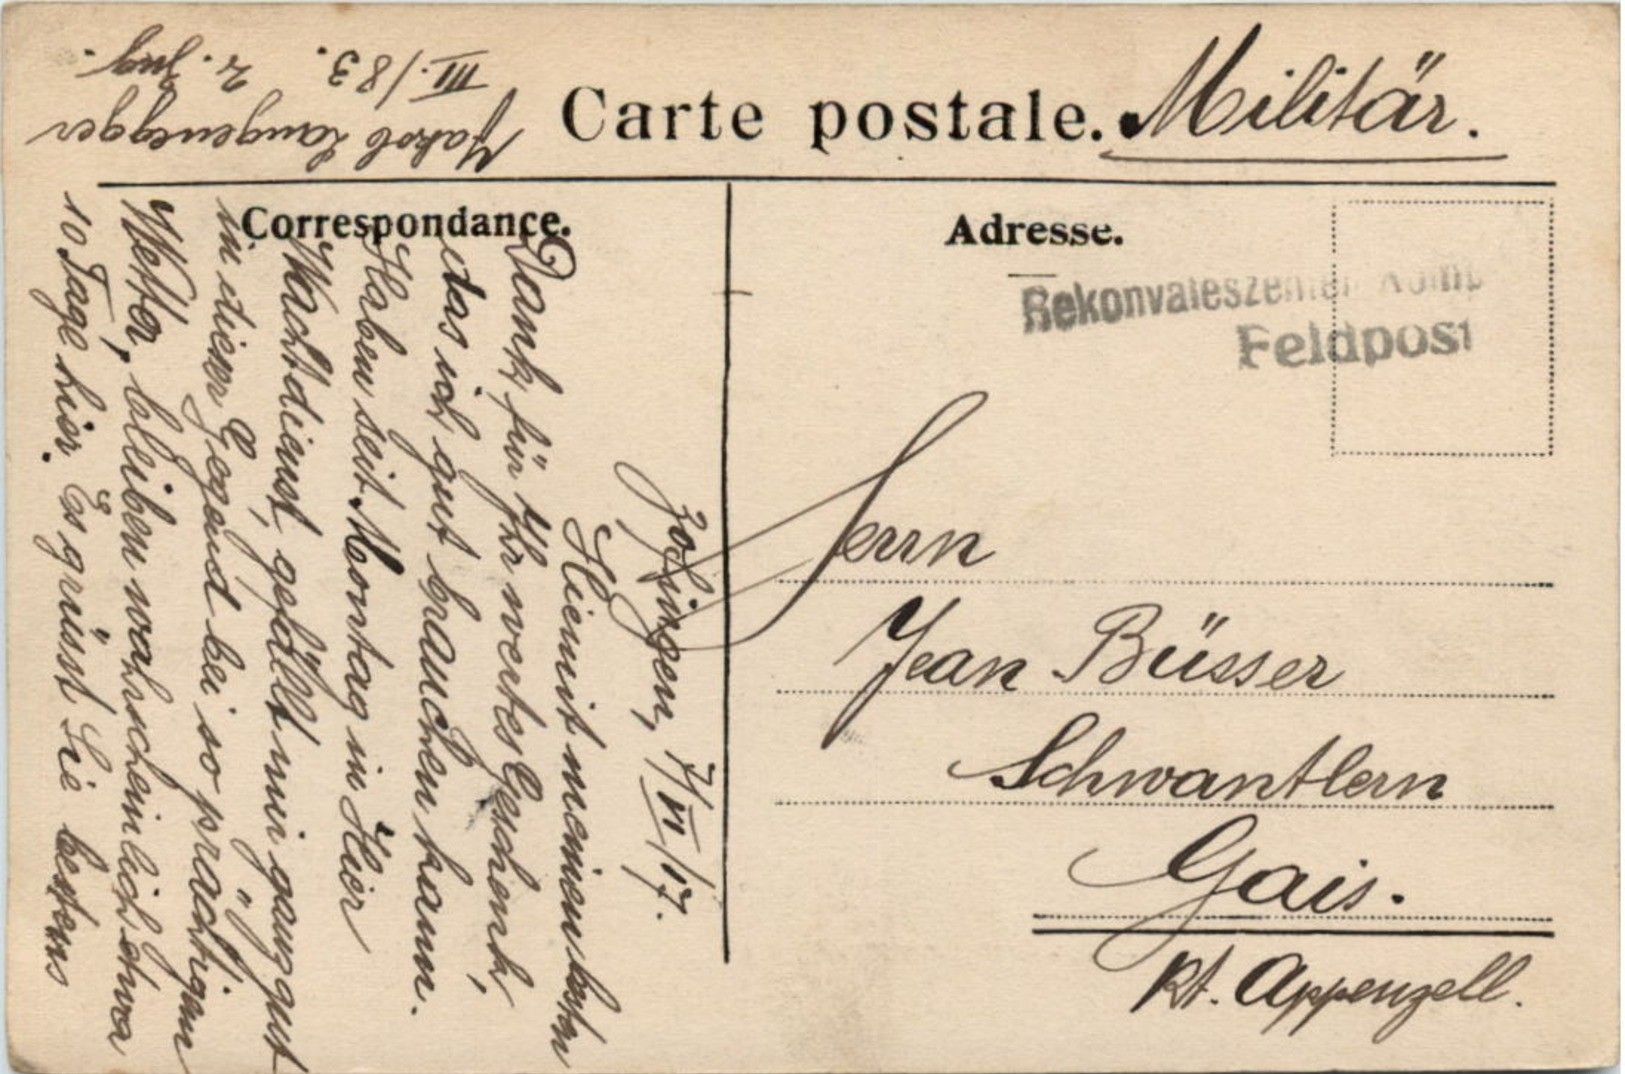 Carte postale. Militär.
Correspondance.
Adresse.
Rekonvaleszenten Komp
Feldpost
Herrn
Jean Büsser
Schwantlern
Gais.
Kt. Appenzell.
Zofingen, 7/VI/17.
Hiemit meinen besten
Dank, für Ihr wertes Geschenk,
das ich gut brauchen kann.
Haben seit Montag in Hier
Wachtdienst, gefällt mir ganz gut
in dieser Gegend bei so prächtigem
Wetter, bleiben wahrscheinlich etwa
10 Tage hier. Es grüsst Sie bestens
Jakob Langenegger
III./83. 2. Zug.